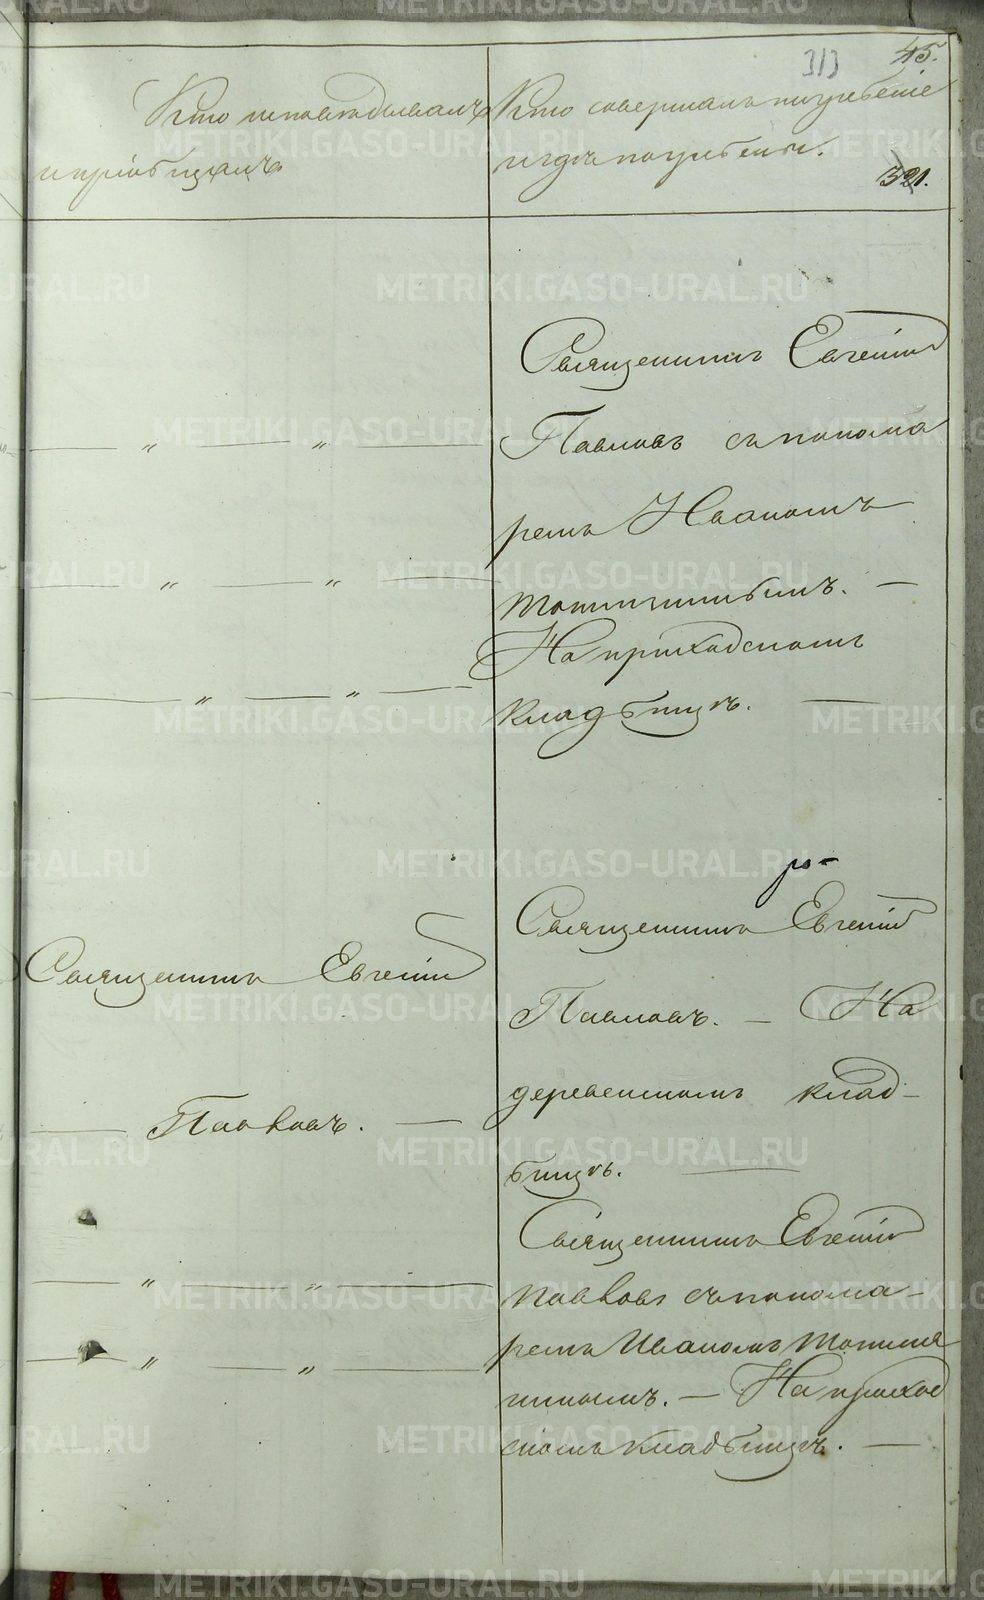 45.
313
Кто исповѣдывалъ
и пріобщалъ
Кто совершалъ погребеніе
и гдѣ погребены.
321.
Священникъ Евгеній
Павловъ съ понома
ремъ Иваномъ
На приходскомъ
кладбищѣ. —
Священникъ Евгеній
Павловъ. —
Священникъ Евгеній
Павловъ. — На
деревенскомъ клад-
бищѣ.
Священникъ Евгеній
Павловъ съ понома-
ремъ Иваномъ
— На приход
скомъ кладбищѣ. —
METRIKI.GASO-URAL.RU